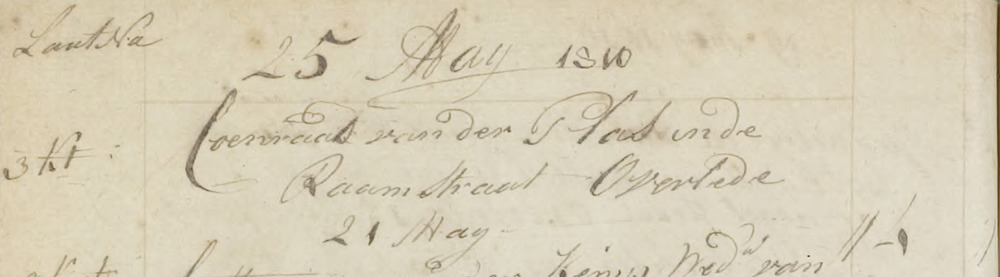 25 May 1810
3 Kt: Coenraat van der Plas inde
Raamstraat Overlede
21 May
Kemp Wedu van